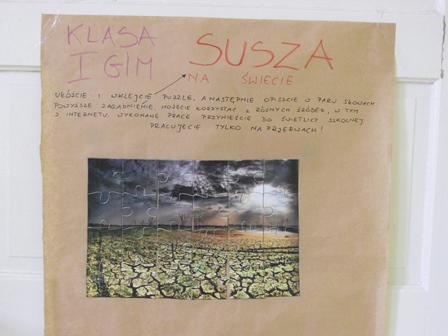 KLASA
I GIM
SUSZA
NA ŚWIECIE
UŁÓŻCIE I WKLEJCIE PUZZLE, A NASTĘPNIE OPISZCIE W PARU SŁOWACH
POWYŻSZE ZAGADNIENIE. MOŻECIE KORZYSTAĆ Z RÓŻNYCH ŹRÓDEŁ, W TYM
Z INTERNETU. WYKONANE PRACE PRZYNIEŚCIE DO ŚWIETLICY SZKOLNEJ
PRACUJECIE TYLKO NA PRZERWACH!